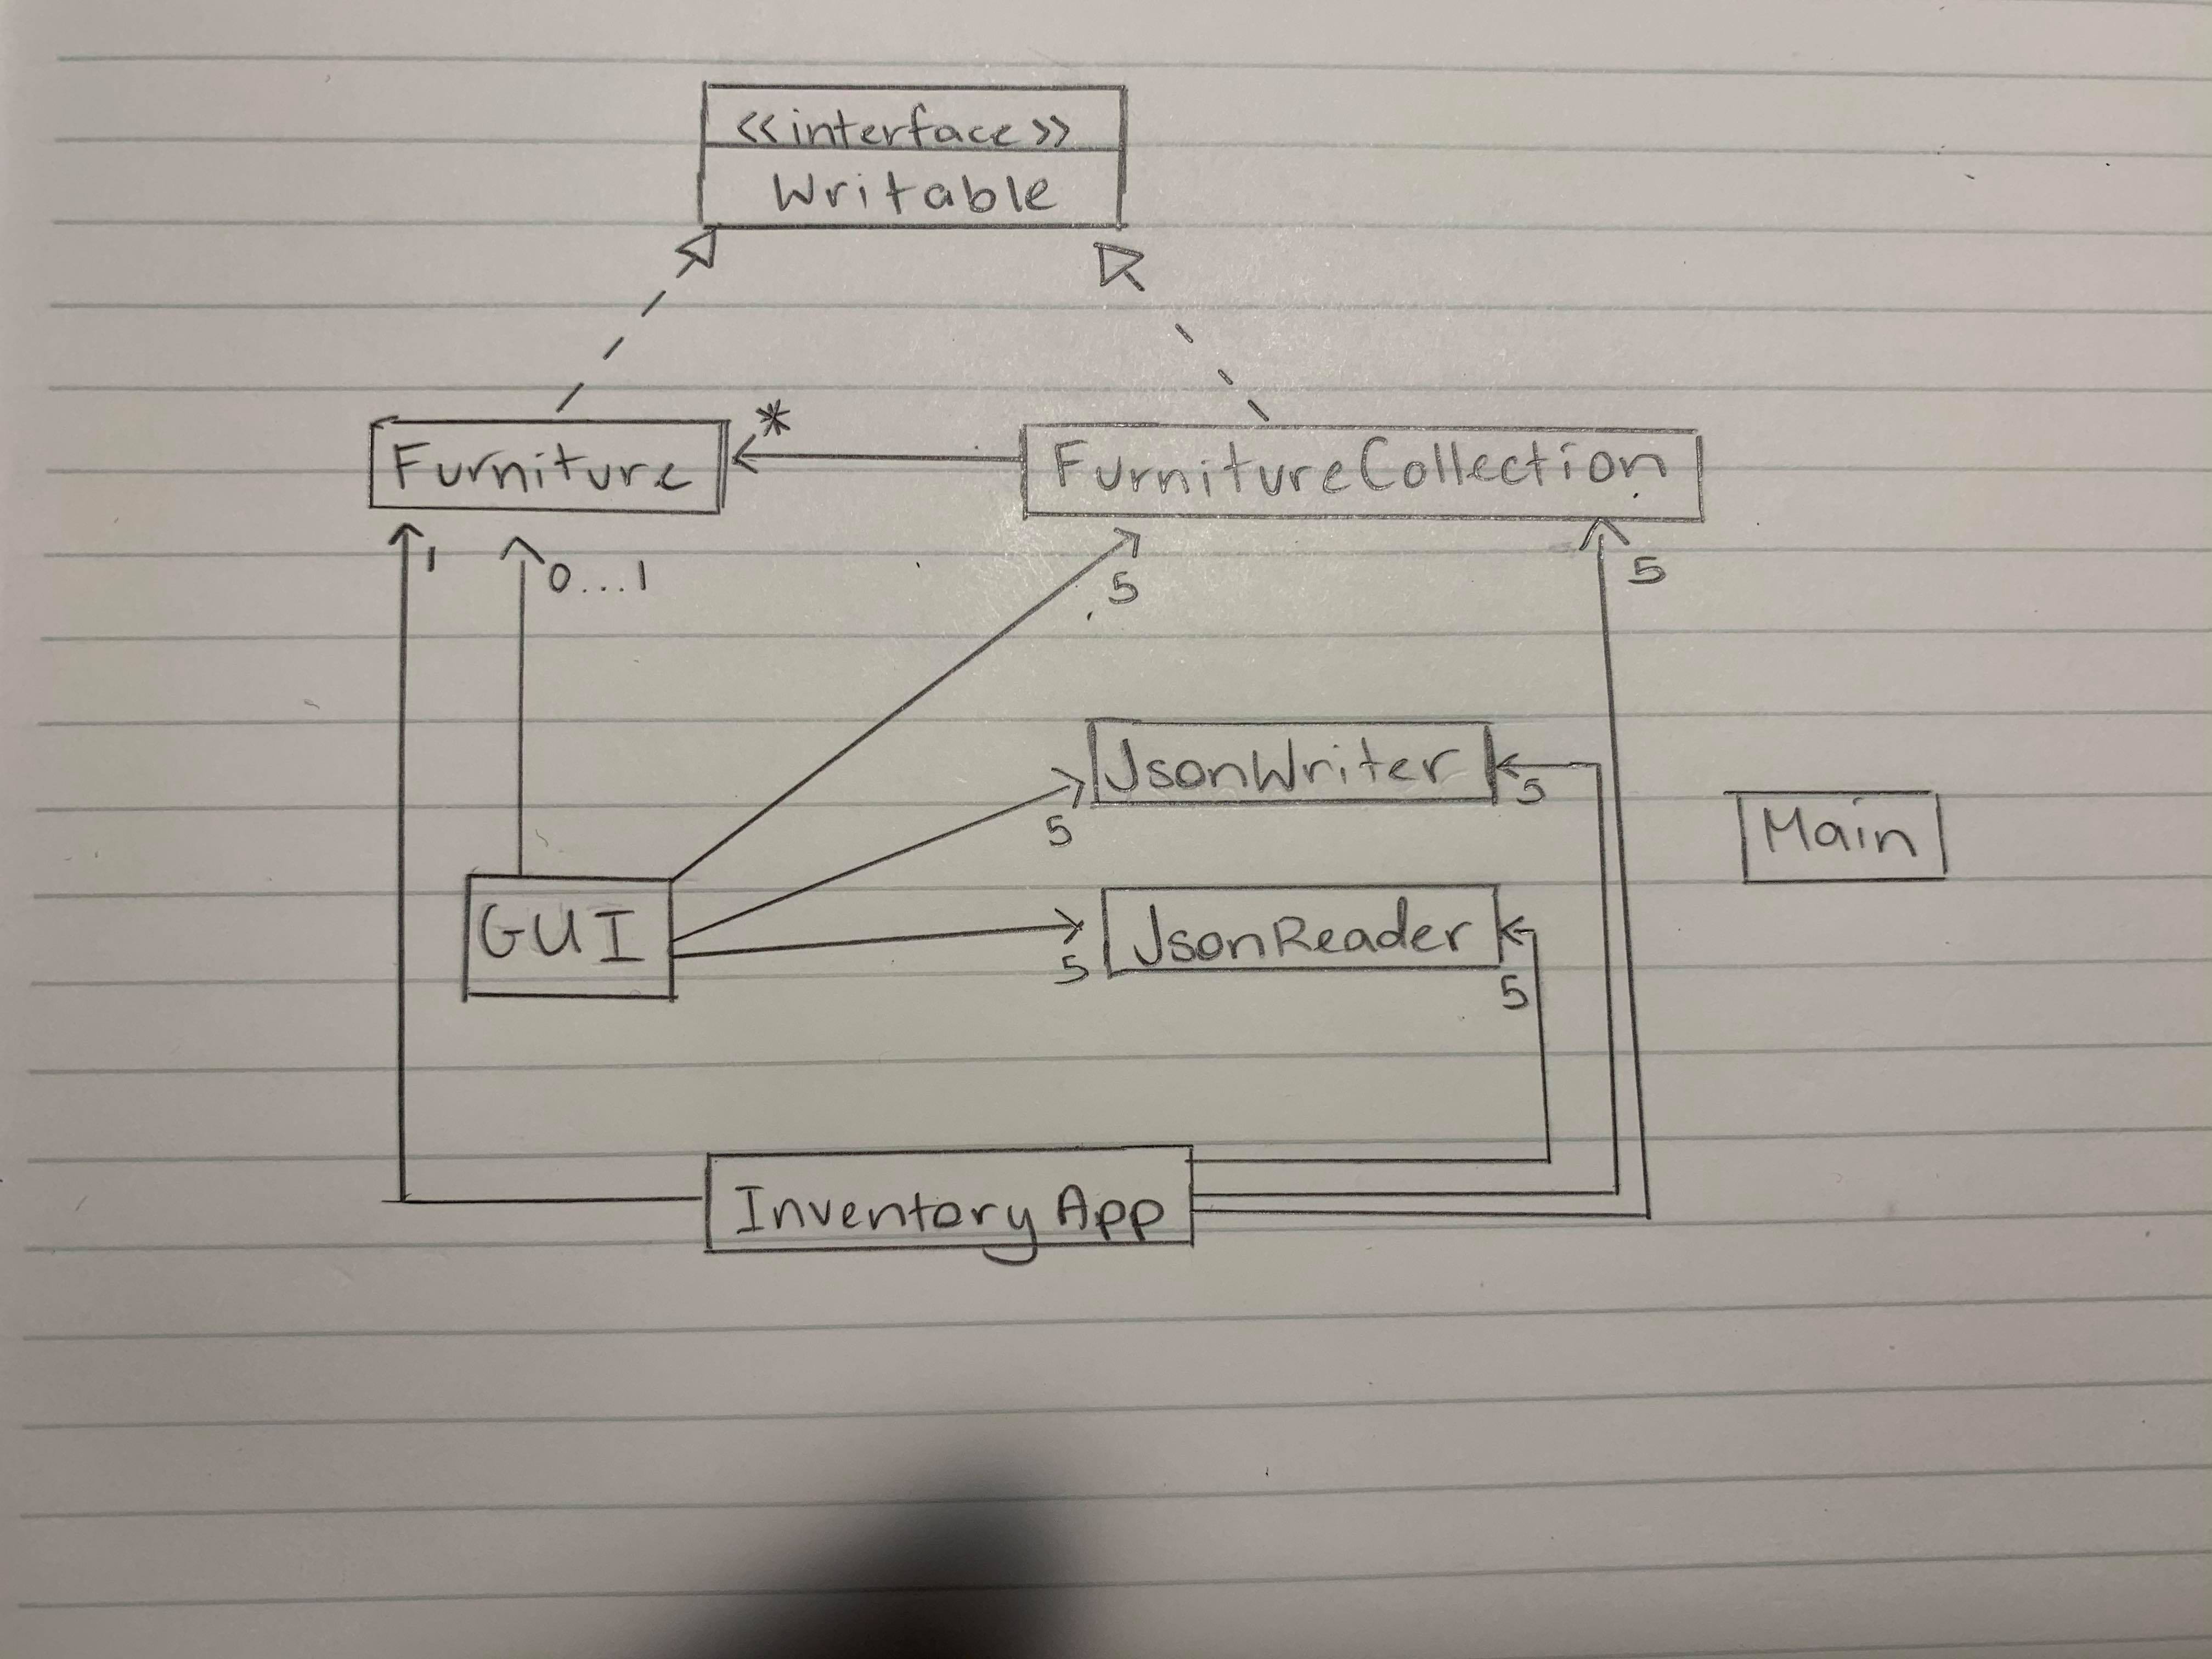 <<interface>>
Writable
*
Furniture
FurnitureCollection
1
0...1
5
5
JsonWriter
5
5
Main
GUI
JsonReader
5
5
Inventory App